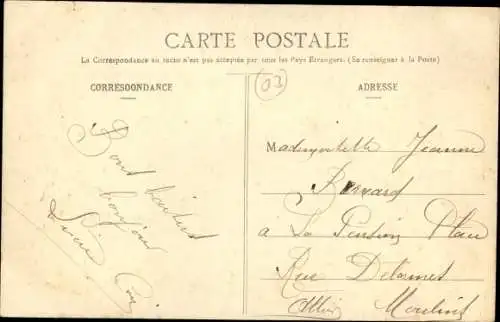 CARTE POSTALE
La Correspondance au recto n'est pas acceptée par tous les Pays Etrangers. (Se renseigner à la Poste)
CORRESODONDANCE
ADRESSE
03
Mademoiselle Jeanne
Bernard
a La Pension
Rue Delormes
Allier Moulins
Bons baisers
bonjour